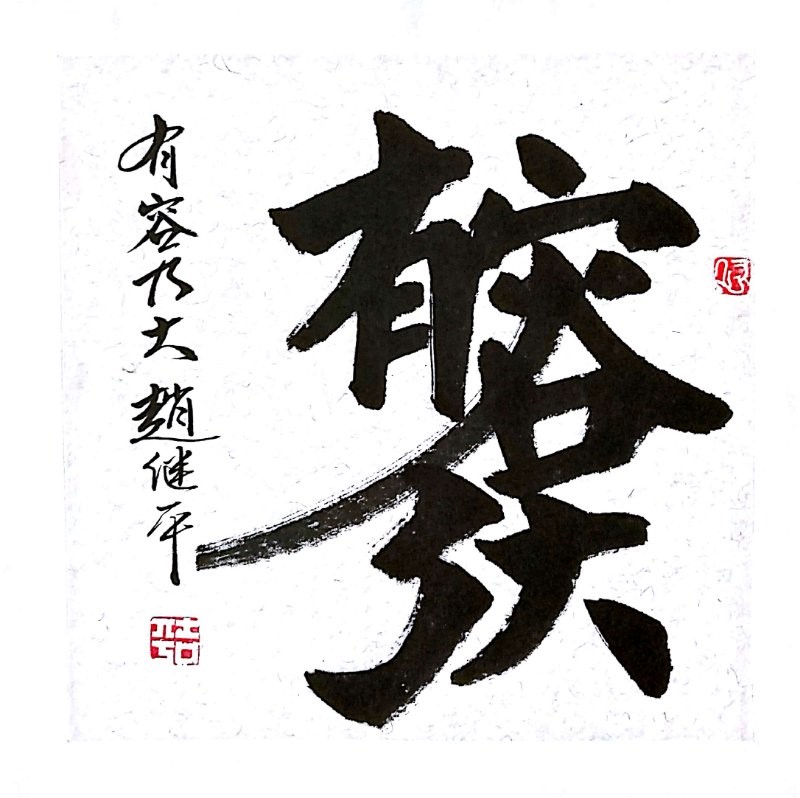 有容乃大
有容乃大 趙继平